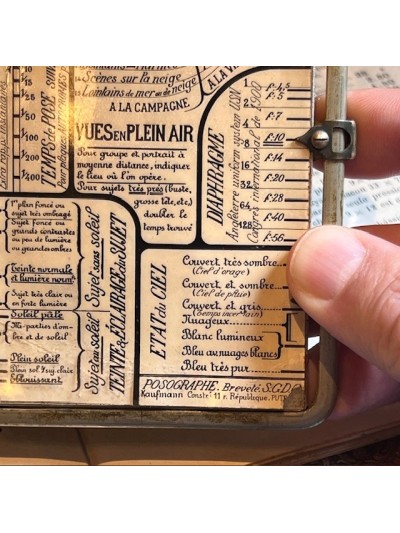 Scènes sur la neige
Lointains de mer ou de neige
A LA CAMPAGNE
VUES EN PLEIN AIR
Pour groupe et portrait à
moyenne distance, indiquer
le lieu où l'on opère.
Pour sujets très près (buste,
grosse tête, etc.)
doubler le
temps trouvé
1/25
1/50
1/100
1/200
1/400
TEMPS de POSE
DIAPHRAGME
Angleterre uniform system USN
Congrès international de 1900
1 F:4,5
2 F:5
4
8 F:10
16 F:14
32 F:20
64 F:28
128 F:40
F:56
1er plan foncé ou
sujet très ombragé
Sujet foncé ou
grands contrastes
ou peu de lumière
ou grandes ombres
Teinte normale
et lumière norm.
Sujet très clair ou
forte lumière
Soleil pâle
Mi-parties d'om-
bre et de soleil
Plein soleil
Plein sol. suj. clair
Eblouissant
Sujet sans soleil
Sujet au soleil
TEINTE & ÉCLAIRAGE du SUJET
ETAT du CIEL
Couvert très sombre
(Ciel d'orage)
Couvert et sombre
(Ciel de pluie)
Couvert et gris
(Temps incertain)
Nuageux
Blanc lumineux
Bleu au nuages blancs
Bleu très pur
POSOGRAPHE. Breveté. S.G.D.G
Kaufmann Constr. 11 r. République.